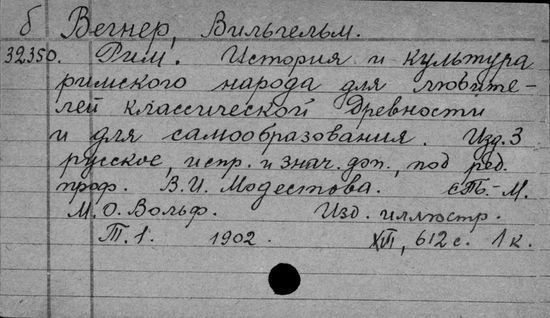 б Вегнер, Вильгельм.
32350. Рим. История и культура
римского народа для любите-
лей классической древности
и для самообразования. Изд. 3
русское, испр. и знач. доп., под ред.
проф. В. И. Модестова. СПб.-М.
М. О. Вольф. Изд. иллюстр.
Т. 1. 1902. XVI, 612 с. 1 к.